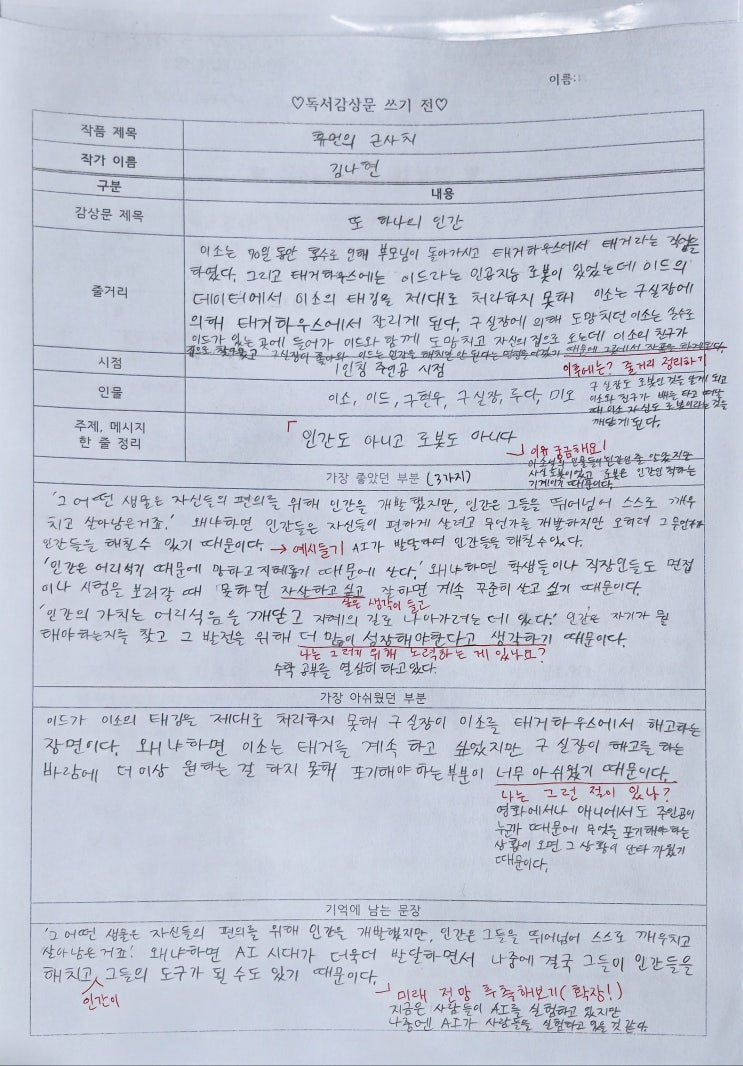 이름:
♡독서감상문 쓰기 전♡
작품 제목 휴먼의 근사치
작가 이름 김나현
구분 내용
감상문 제목 또 하나의 인간
줄거리
이소는 70일 동안 홍수로 인해 부모님이 돌아가시고 태거하우스에서 태거라는 직업을
하였다. 그리고 태거하우스에는 이드라는 인공지능 로봇이 있었는데 이드의
데이터에서 이소의 태깅을 제대로 처리하지 못해 이소는 구실장에
의해 태거하우스에서 잘리게 된다. 구실장에 의해 도망치던 이소는 실수로
이드가 있는 곳에 들어가 이드와 함께 도망치고 자신의 집으로 오는데 이소의 친구가
집으로 찾아왔고 구실장이 쫓아와 이드는 인간을 해치면 안 된다는 명령을 어겼기 때문에 그곳에서 작동을 하게된다.
이후에는? 줄거리 정리하기
구실장도 로봇인 것을 알게 되고
이소와 친구가 배를 타고 떠날
때 이소 자신도 로봇이라는 것을
깨닫게 된다.
시점 1인칭 주인공 시점
인물 이소, 이드, 구현우, 구실장, 루다, 미오
주제, 메시지
한 줄 정리
「인간도 아니고 로봇도 아니다
이유 궁금해요!
이 소설의 인물들이 인간인 줄 알았지만
사실 로봇이었고 로봇은 인간인 척하는
기계이기 때문이다.
가장 좋았던 부분 (3가지)
'그 어떤 생물은 자신들의 편의를 위해 인간을 개발했지만, 인간은 그들을 뛰어넘어 스스로 깨우
치고 살아남은거죠.' 왜냐하면 인간들은 자신들이 편하게 살려고 무언가를 개발하지만 오히려 그 무언가가
인간들을 해칠 수 있기 때문이다. → 예시들기 AI가 발달하여 인간들을 해칠수있다.
'인간은 어리석기 때문에 망하고 지혜롭기 때문에 산다.' 왜냐하면 학생들이나 직장인들도 면접
이나 시험을 보러갈 때 못하면 자살하고 싶고 잘하면 계속 꾸준히 살고 싶기 때문이다.
싶은 생각이 들고
'인간의 가치는 어리석음을 깨닫고 지혜의 길로 나아가려는 데 있다.' 인간은 자기가 뭘
해야하는지를 찾고 그 발전을 위해 더 많이 성장해야한다고 생각하기 때문이다.
나는 그러기 위해 노력하는 게 있나요?
수학 공부를 열심히 하고있다.
가장 아쉬웠던 부분
이드가 이소의 태깅을 제대로 처리하지 못해 구실장이 이소를 태거하우스에서 해고하는
장면이다. 왜냐하면 이소는 태거를 계속 하고 싶었지만 구실장이 해고를 하는
바람에 더 이상 원하는 걸 하지 못해 포기해야 하는부분이 너무 아쉬웠기 때문이다.
나는 그런 적이 있나?
영화에서나 애니에서도 주인공이
누군가 때문에 무엇을 포기해야하는
상황이 오면 그 상황이 안타까웠기
때문이다.
기억에 남는 문장
'그 어떤 생물은 자신들의 편의를 위해 인간을 개발했지만, 인간은 그들을 뛰어넘어 스스로 깨우치고
살아남은거죠.' 왜냐하면 AI 시대가 더욱더 발달하면서 나중에 결국 그들이 인간들을
해치고 그들의 도구가 될 수도 있기 때문이다.
인간이
미래 전망 추측해보기(확장!)
지금은 사람들이 AI를 실험하고 있지만
나중엔 AI가 사람들을 실험하고 있을 것 같다.